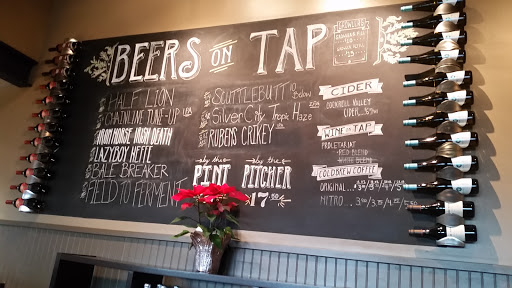 BEERS ON TAP
GROWLERS
HALF LION
CHAINLINE TUNE-UP IPA
IRON HORSE IRISH DEATH
LAZYBOY HEFE
BALE BREAKER
FIELD TO FERMENT
SCUTTLEBUTT 10 Below
Silver City Tropic Haze
RUBENS CRIKEY
by the PINT
by the PITCHER
$17.00
CIDER
COCKRELL VALLEY
CIDER
WINE on TAP
PROLETARIAT
RED BLEND
WHITE BLEND
COLD BREW COFFEE
ORIGINAL
NITRO